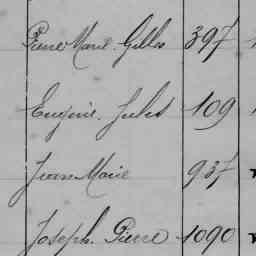 Pierre Marie Gilles 397
Eugène Jules 109
Jean Marie 937
Joseph Pierre 1090